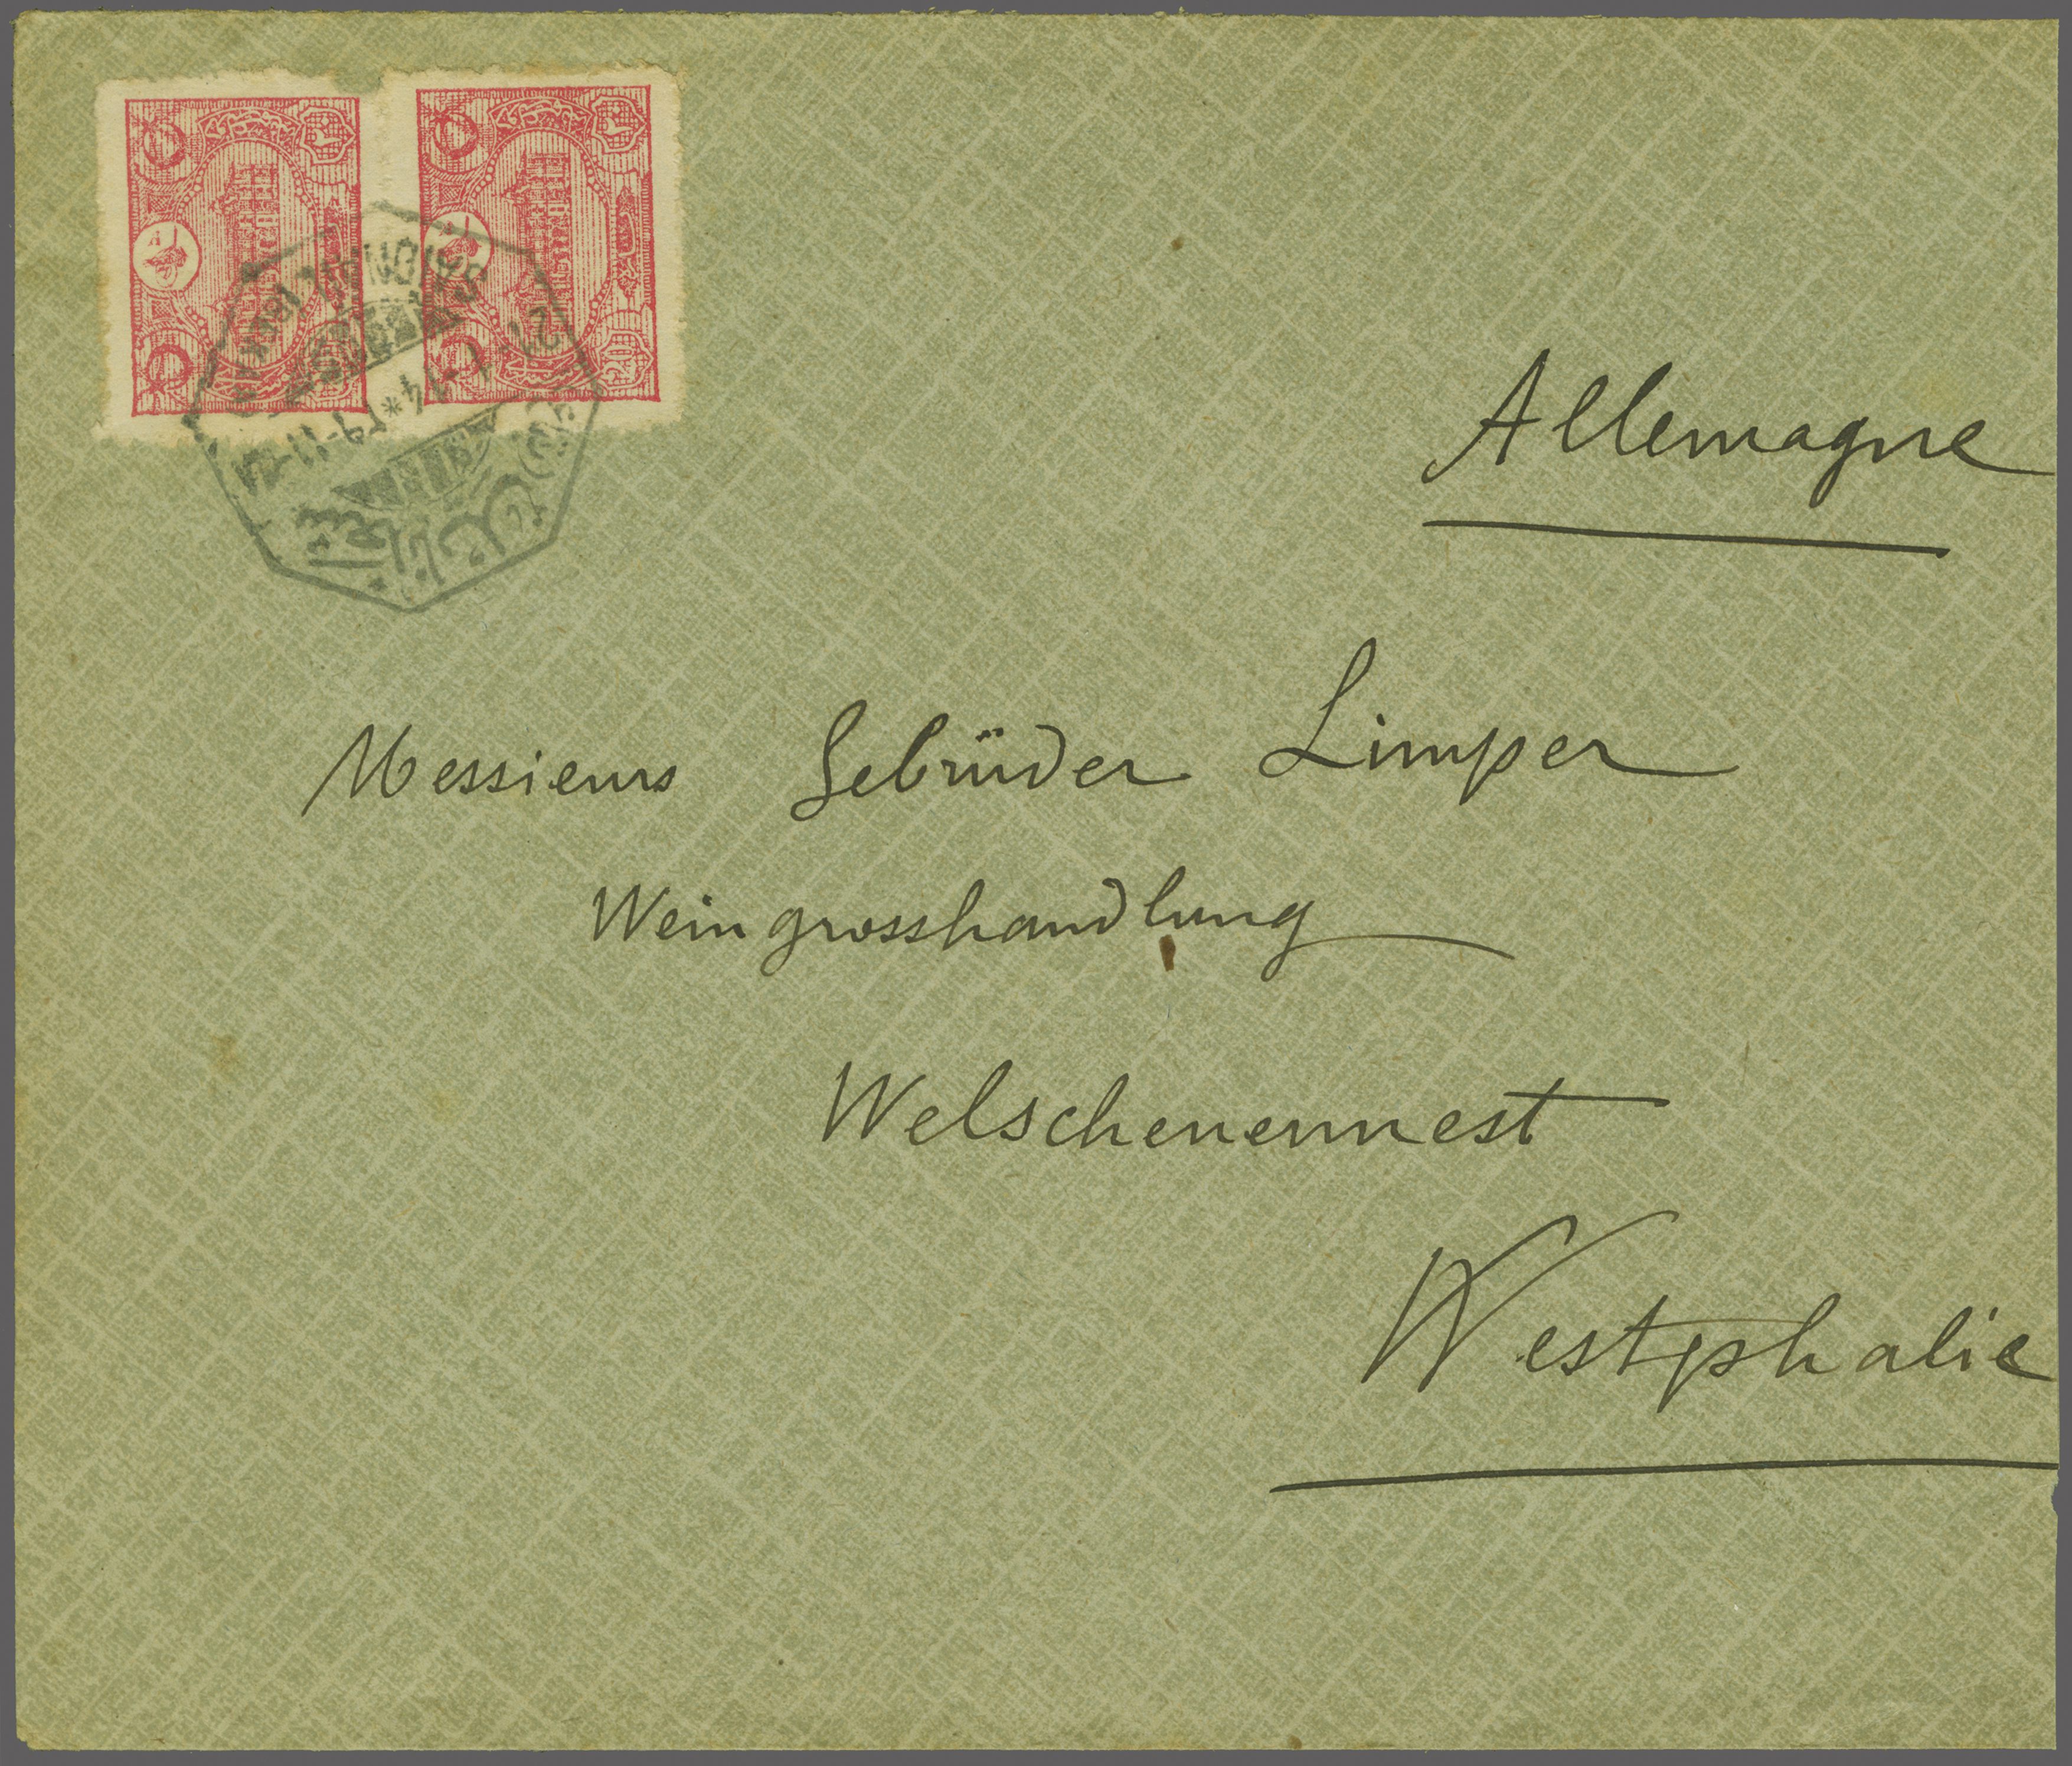 20
20
21-1-14*
Allemagne
Messieurs Gebrüder Limper
Weingrosshandlung
Welschenennest
Westphalie